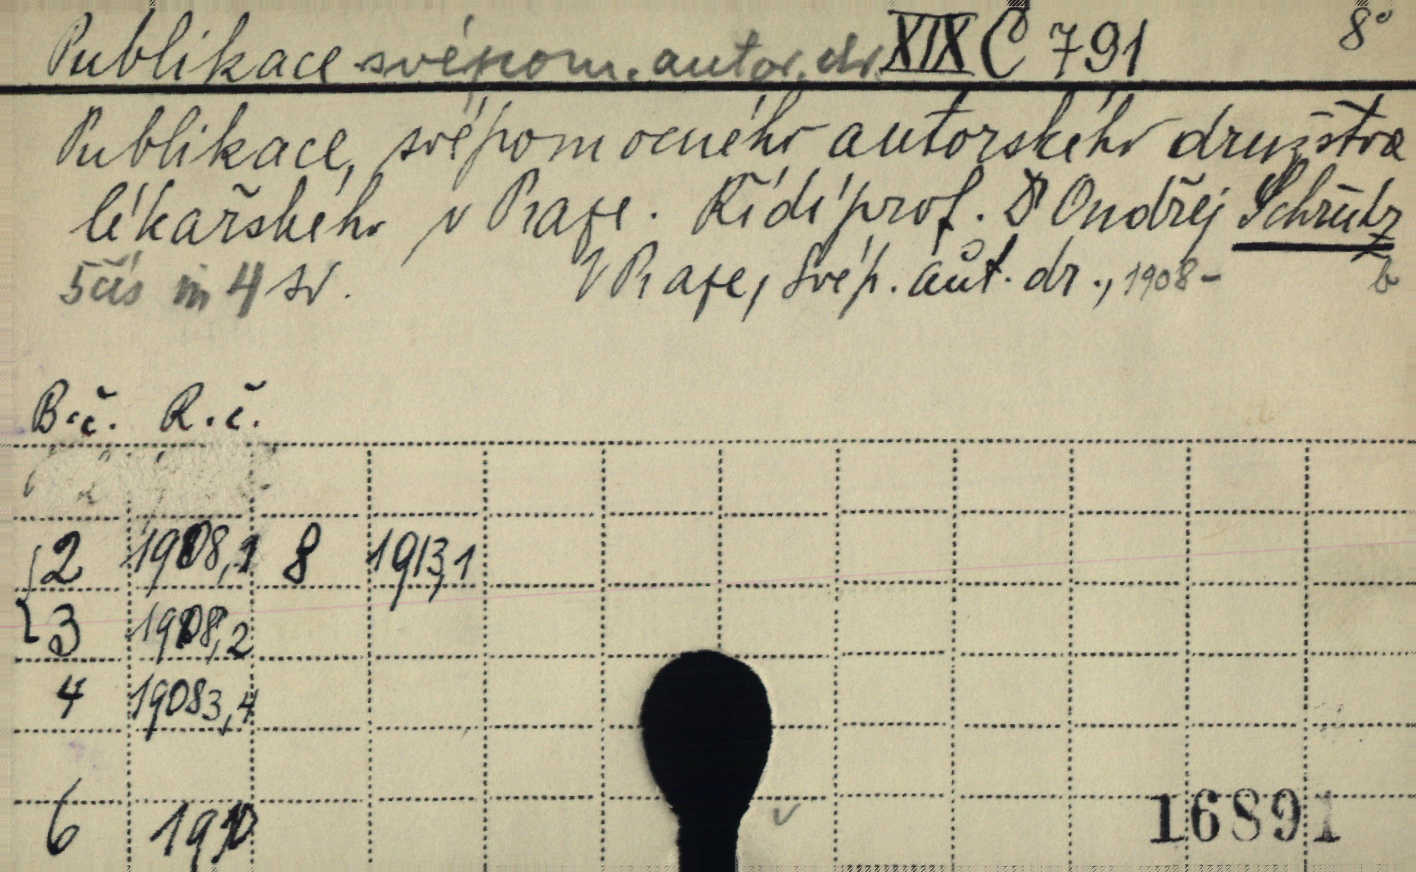 Publikace svépom. autor. dr. XIX C 791 8°
Publikace, svépomocného autorského družstva
lékařského v Praze. Řídí prof. Dr Ondřej Schrutz
5 čís in 4 sv. V Praze, Svép. aut. dr., 1908-
B.č. R.č.
2 1908,1 8 1913,1
3 1908,2
4 1908 3,4
6 1910
16891